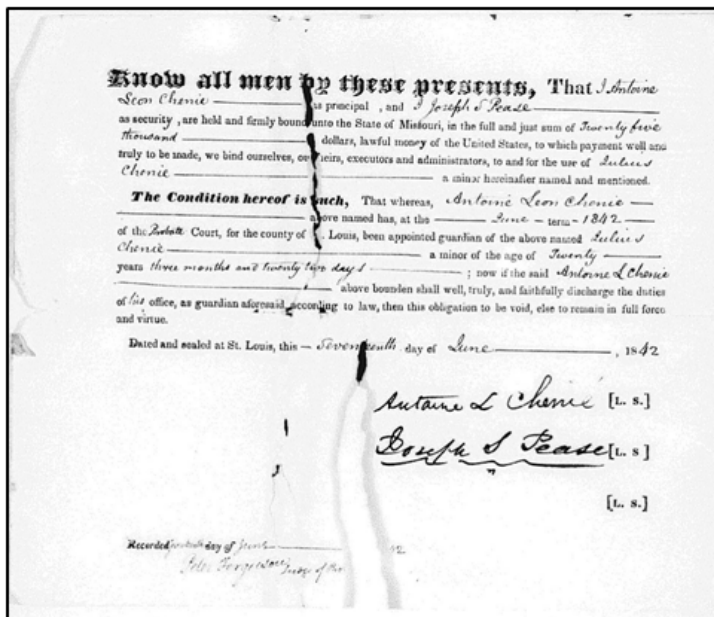 Know all men by these presents, That I Antoine
Leon Chenie as principal, and I Joseph S Pease
as security, are held and firmly bound unto the State of Missouri, in the full and just sum of Twenty five
thousand dollars, lawful money of the United States, to which payment well and
truly to be made, we bind ourselves, our heirs, executors and administrators, to and for the use of Julius
Chenie a minor hereinafter named and mentioned.
The Condition hereof is such, That whereas, Antoine Leon Chenie
above named has, at the June term 1842
of the Probate Court, for the county of St. Louis, been appointed guardian of the above named Julius
Chenie a minor of the age of Twenty
years three months and twenty two days ; now if the said Antoine L Chenie
above bounden shall well, truly, and faithfully discharge the duties
of his office, as guardian aforesaid, according to law, then this obligation to be void, else to remain in full force
and virtue.
Dated and sealed at St. Louis, this Seventeenth day of June , 1842
Antoine L Chenié [L. S.]
Joseph S Pease [L. S]
[L. S.]
Recorded day of June 42
Judge of